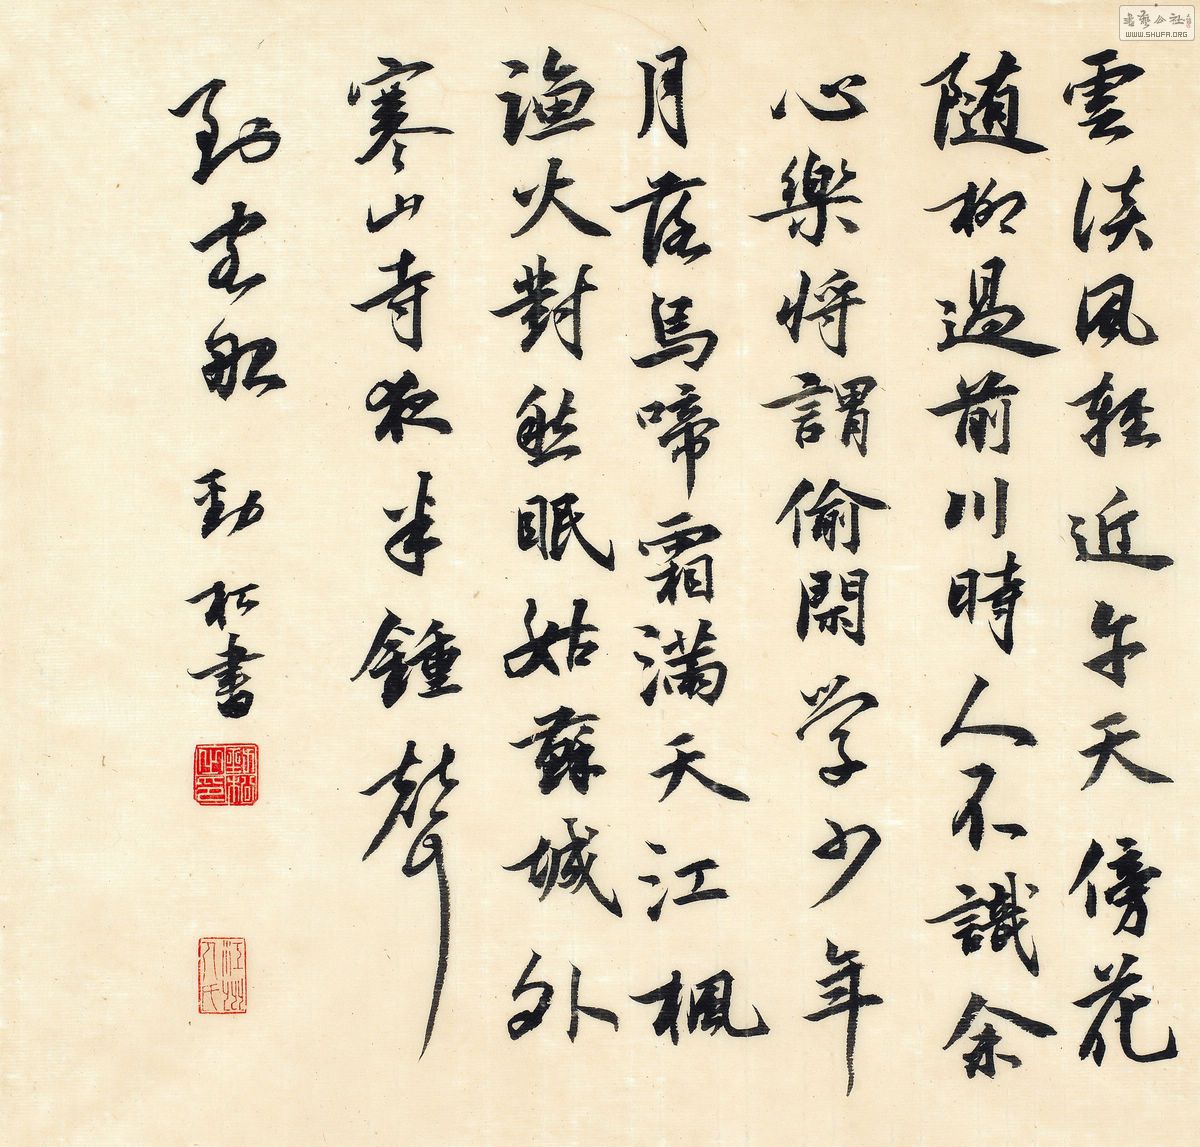 雲淡風輕近午天傍花
随柳過前川時人不識余
心樂將謂偷閑学少年
月落烏啼霜滿天江楓
漁火對愁眠姑蘇城外
寒山寺夜半鍾聲
到客船 勁松書
勁松之印
江州人氏
书艺公社
WWW.SHUFA.ORG